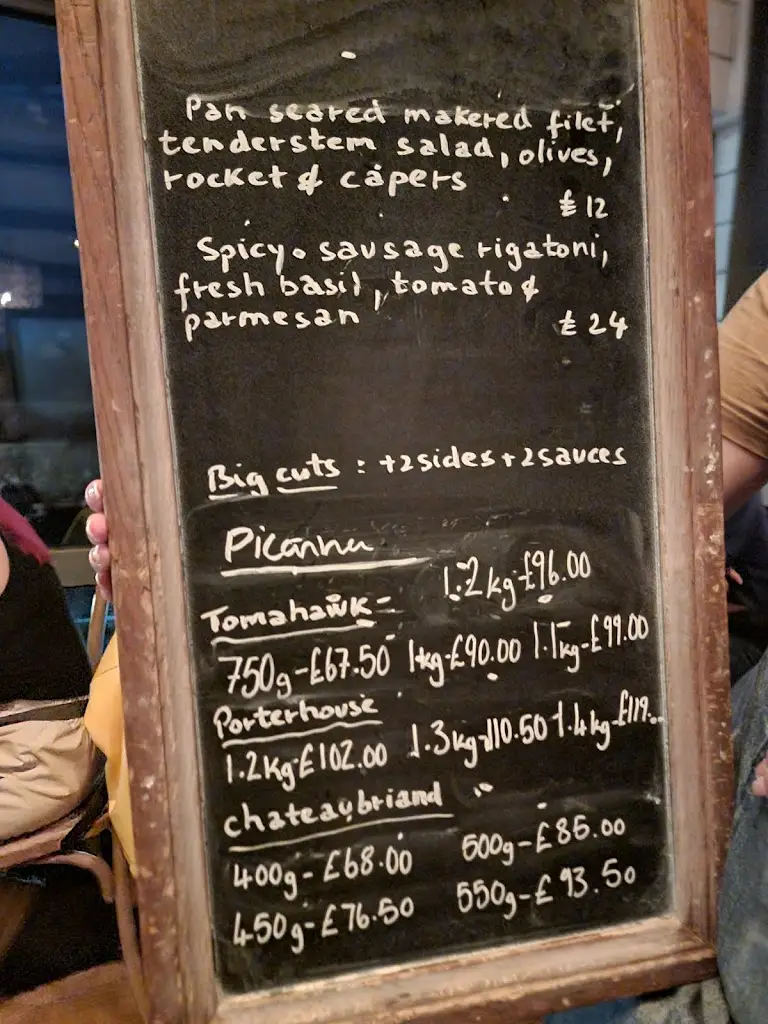 Pan seared makered filet,
tenderstem salad, olives,
rocket & capers
£12
Spicy sausage rigatoni,
fresh basil, tomato &
parmesan
£24
Big cuts : +2sides+2sauces
Picanha
1.2kg-£96.00
Tomahawk-
750g-£67.50 1kg-£90.00 1.1kg-£99.00
Porterhouse
1.2kg-£102.00 1.3kg-110.50 1.4kg-£119..
chateaubriand
400g-£68.00 500g-£85.00
450g-£76.50 550g-£93.50